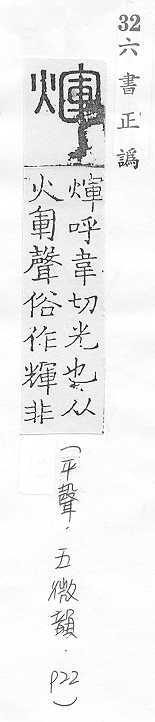 32六書正譌
煇
煇呼韋切光也从
火軍聲俗作輝非
（平聲．五微韻．p22）